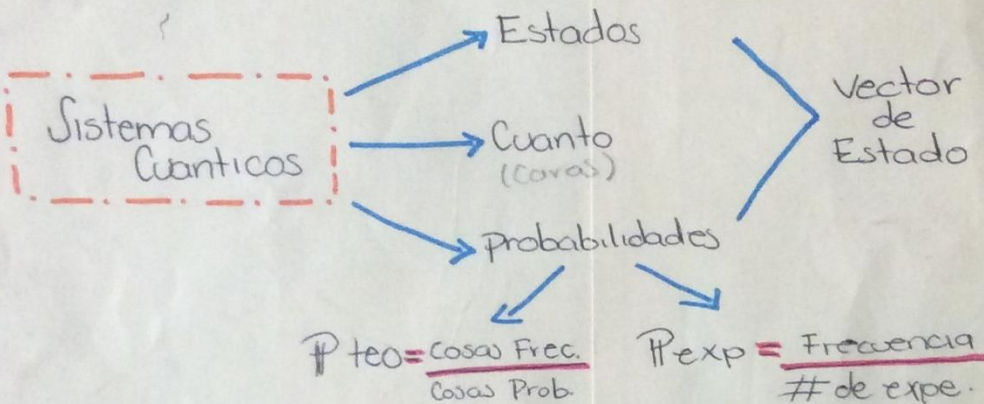 Estados
Sistemas
Cuanticos
Cuanto
(Caras)
probabilidades
vector
de
Estado
P teo = Cosas Frec.
Cosas Prob.
P exp = Frecuencia
# de expe.